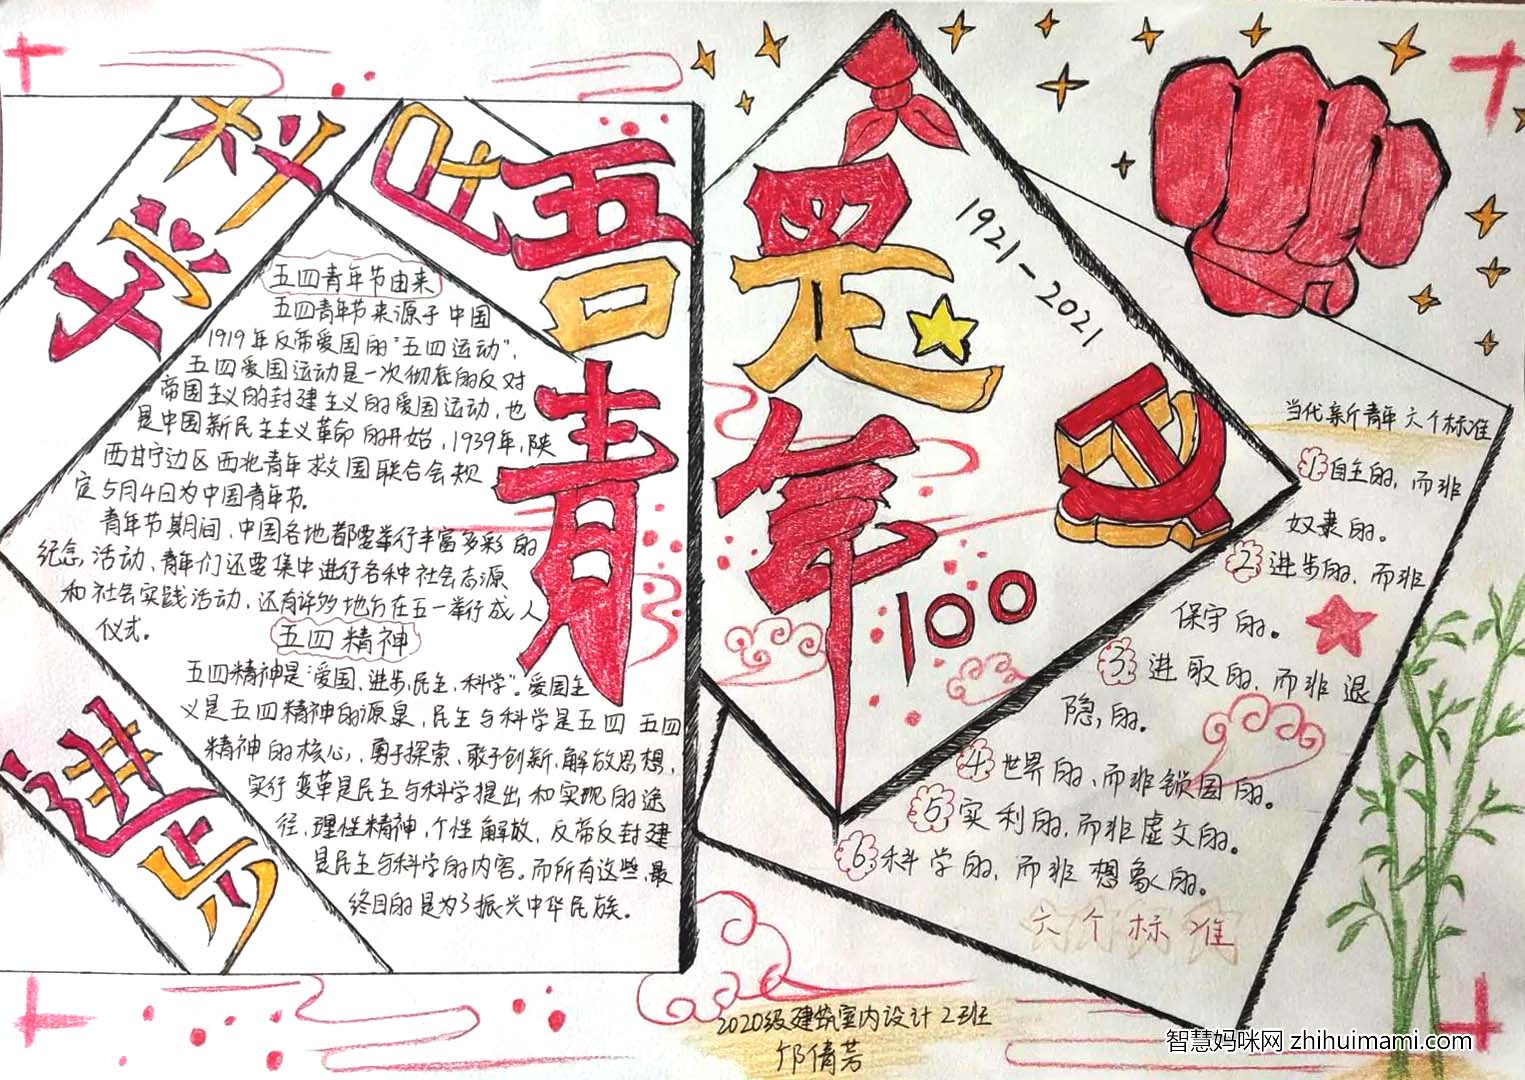 科
学
民
主
进
步
吾
是
青
年
1921-2021
100
五四青年节由来
五四青年节来源于中国
1919年反帝爱国的“五四运动”，
五四爱国运动是一次彻底的反对
帝国主义的封建主义的爱国运动，也
是中国新民主主义革命的开始，1939年，陕
西甘宁边区西北青年救国联合会规
定5月4日为中国青年节。
青年节期间，中国各地都要举行丰富多彩的
纪念活动、青年们还要集中进行各种社会志源
和社会实践活动，还有许多地方在五一举行成人
仪式。
五四精神
五四精神是“爱国、进步、民主、科学”。爱国主
义是五四精神的源泉，民主与科学是五四 五四
精神的核心，勇于探索、敢于创新、解放思想，
实行变革是民主与科学提出和实现的途
径，理性精神，个性解放，反帝反封建
是民主与科学的内容。而所有这些，最
终目的是为了振兴中华民族。
当代新青年六个标准
1 自主的，而非
奴隶的。
2 进步的，而非
保守的。
3 进取的，而非退
隐的。
4 世界的，而非锁国的。
5 实利的，而非虚文的。
6 科学的，而非想象的。
六个标准
2020级建筑室内设计2班
邝倩芳
智慧妈咪网 zhihuimami.com